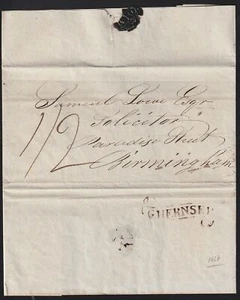 Samuel Lowe Esqr
Solicitor
1/2
Paradise Street
Birmingham
GUERNSEY